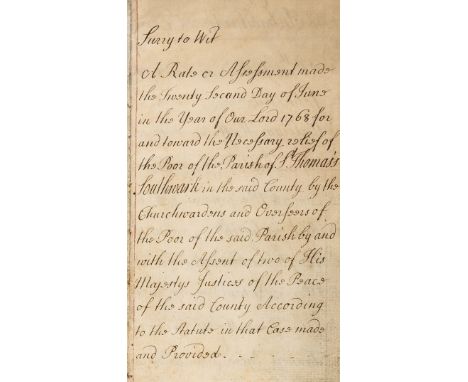 Surry to Wit
A Rate or Assessment made
the Twenty Second Day of June
in the Year of Our Lord 1768 for
and toward the Necessary relief of
the Poor of the Parish of St Thomas's
Southwark in the said County by the
Churchwardens and Overseers of
the Poor of the said Parish by and
with the Assent of two of His
Majestys Justices of the Peace
of the said County According
to the Statute in that Case made
and Provided. _ . _ . _